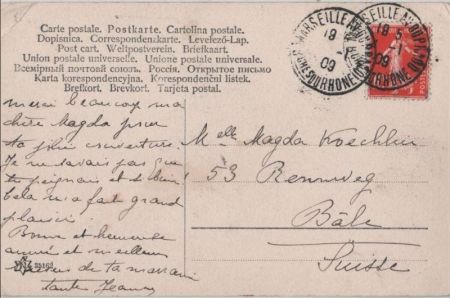 Carte postale. Postkarte. Cartolina postale.
Dopisnica. Correspondenzkarte. Levelező-Lap.
Post cart. Weltpostverein. Briefkaart.
Union postale universelle. Unione postale universale.
Всемірный почтовой союзъ. Россія. Открытое письмо
Karta korespondencyjna. Korespondenční lístek.
Brefkort. Brevkort. Tarjeta postal.
MARSEILLE
19
09
RHONE
MARSEILLE
19
09
RHONE
merci beaucoup ma
chère Magda pour
ta jolie couverture.
Je ne savais pas que
tu peignais et si bien!
Cela m'a fait grand
plaisir.
Bonne et heureuse
année et meilleurs
de ta marraine
tante Jeanne
Melle Magda Koechlin
53 Rennweg
Bâle
Suisse